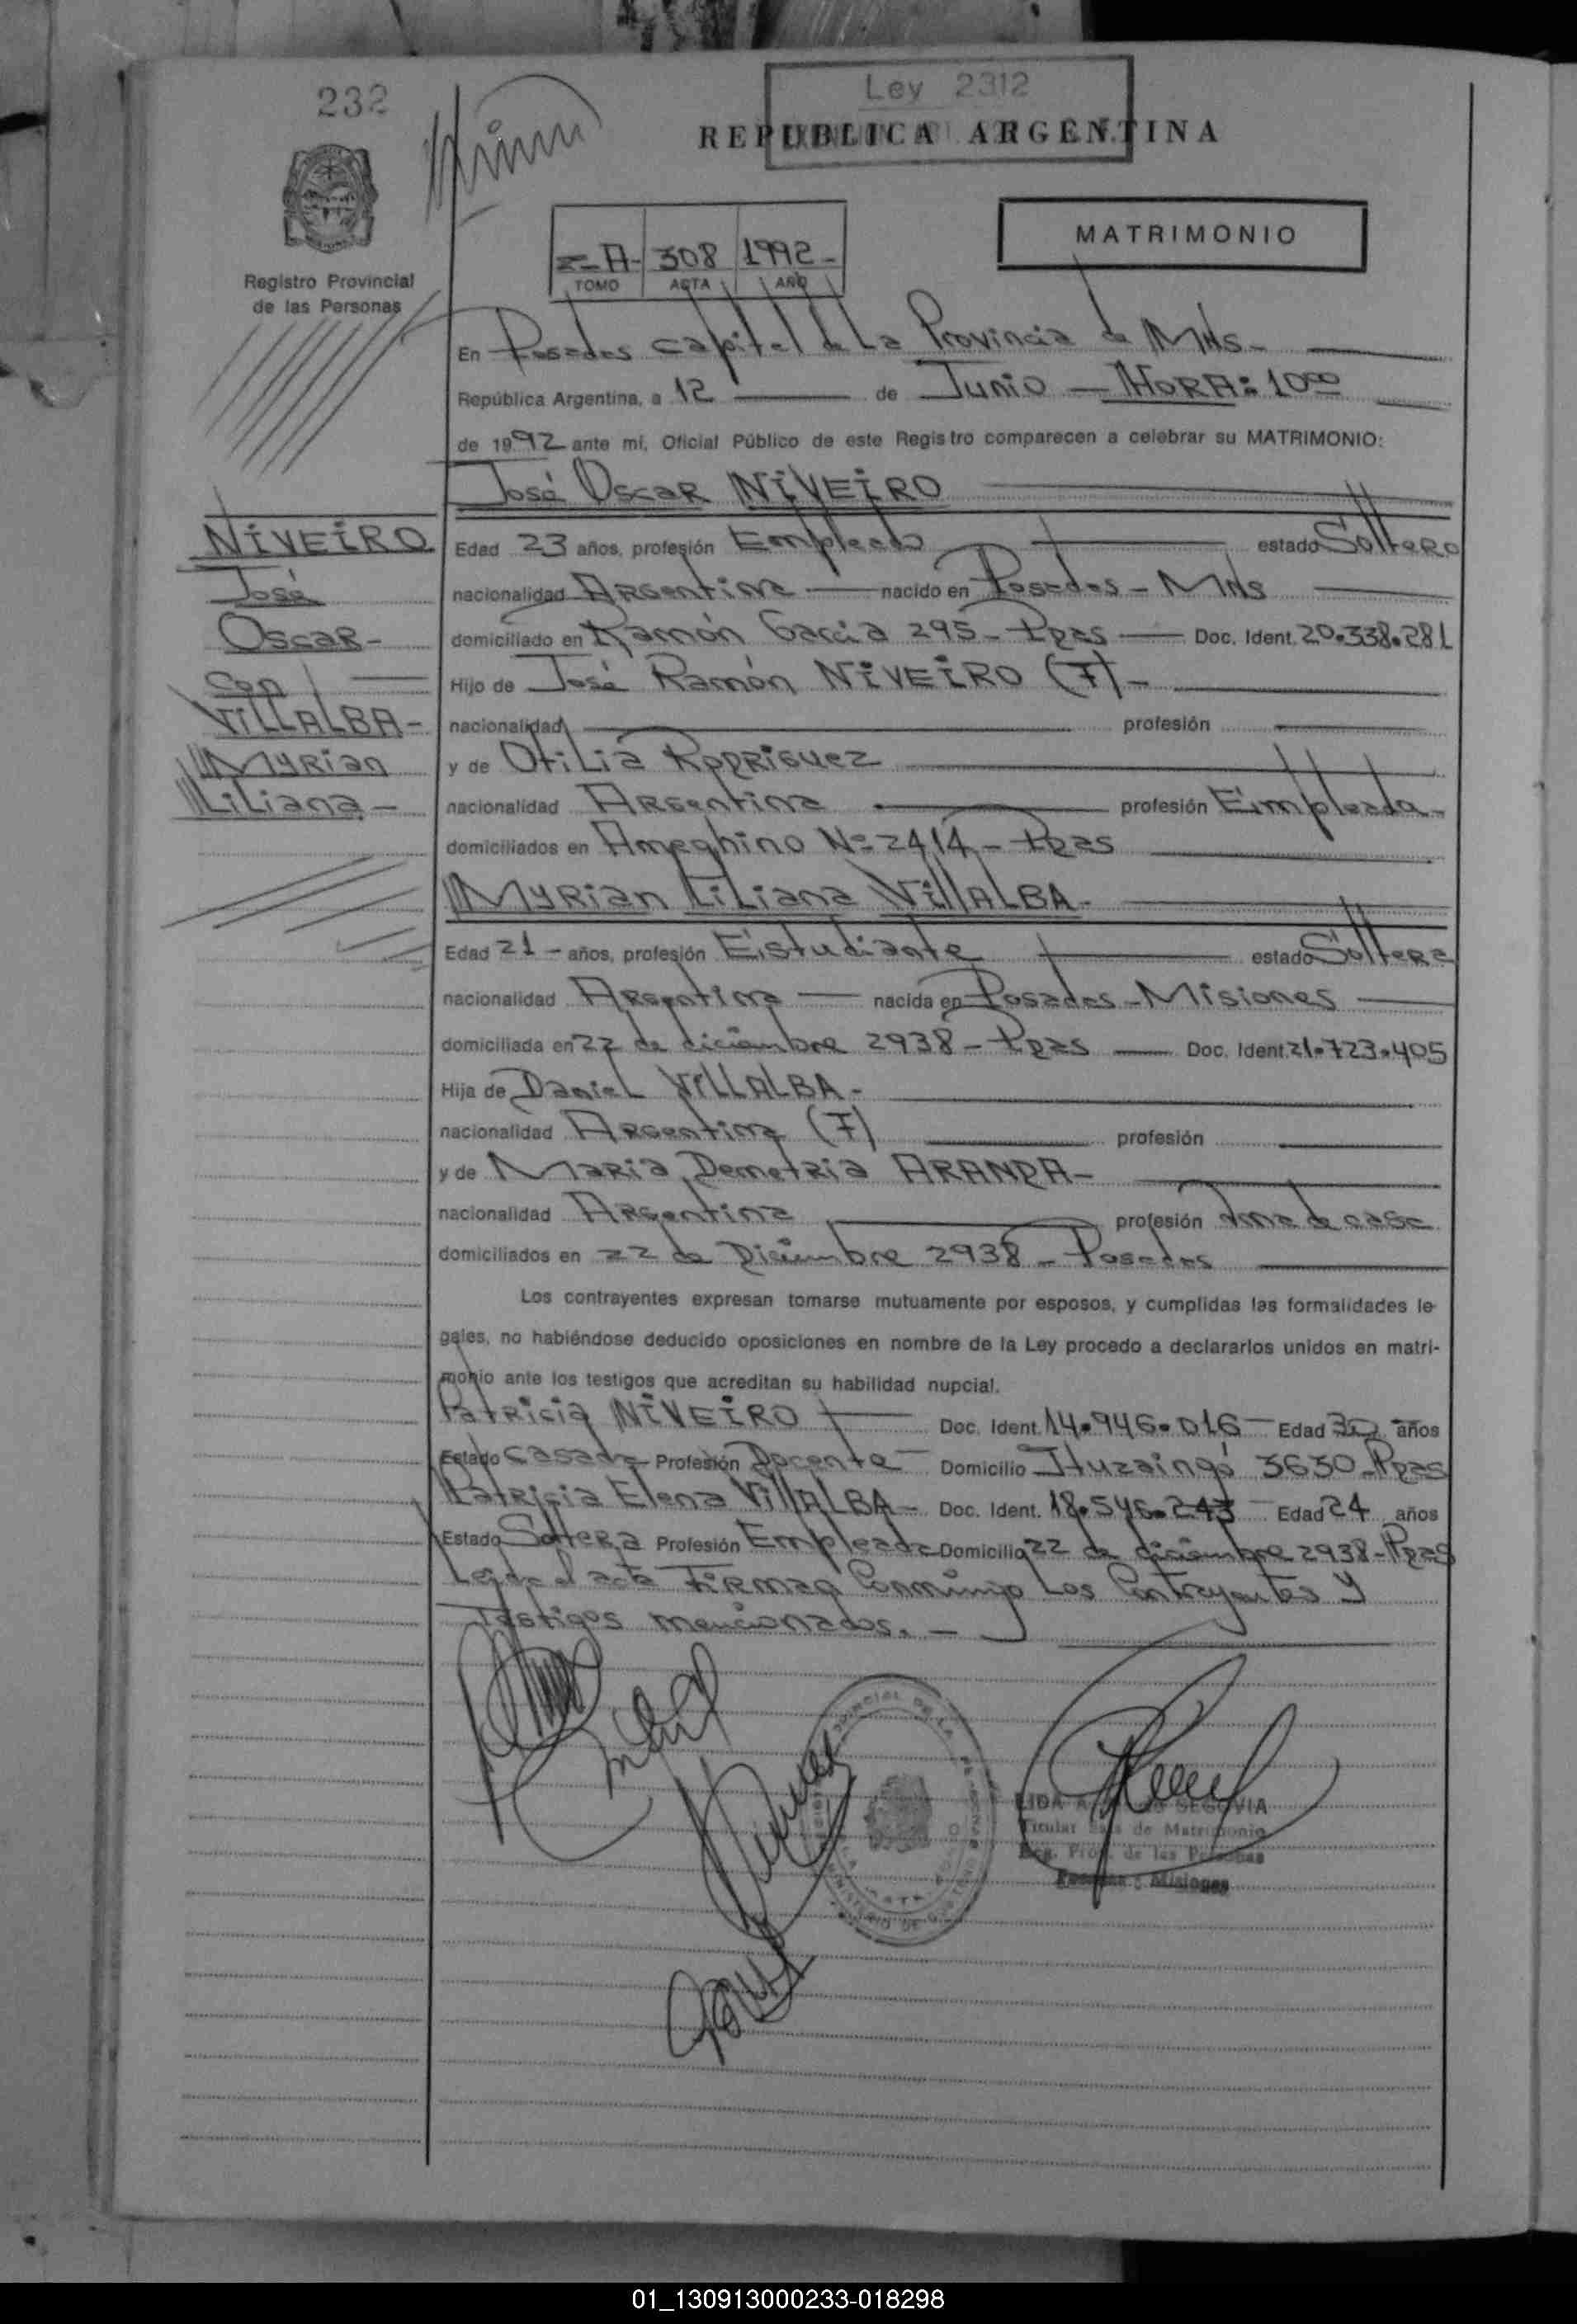 232
Ley 2312
REPUBLICA ARGENTINA
MATRIMONIO
2-A- 308 1992-
TOMO ACTA AÑO
Registro Provincial
de las Personas
En Posadas capital de La Provincia de Mnes-
República Argentina, a 12 de Junio - HORA: 10⁰⁰
de 1992 ante mí, Oficial Público de este Registro comparecen a celebrar su MATRIMONIO:
José Oscar NIVEIRO
NIVEIRO
José
Oscar-
con
VILLALBA-
Myrian
Liliana-
Edad 23 años, profesión Empleado estado Soltero
nacionalidad Argentina nacido en Posadas - Mnes
domiciliado en Ramón Garcia 295- Pdas Doc. Ident. 20.338.281
Hijo de José Ramón NIVEIRO (F)-
nacionalidad profesión
y de Otilia Rodriguez
nacionalidad Argentina profesión Empleada-
domiciliados en Ameghino Nº 2414- Pdas
Myrian Liliana VILLALBA-
Edad 21- años, profesión Estudiante estado Soltera
nacionalidad Argentina nacida en Posadas - Misiones
domiciliada en 22 de diciembre 2938- Pdas Doc. Ident. 21.723.405
Hija de Daniel VILLALBA-
nacionalidad Argentina (F) profesión
y de Maria Demetria ARANDA-
nacionalidad Argentina profesión Ama de casa
domiciliados en 22 de Diciembre 2938- Posadas
Los contrayentes expresan tomarse mutuamente por esposos, y cumplidas las formalidades le-
gales, no habiéndose deducido oposiciones en nombre de la Ley procedo a declararlos unidos en matri-
monio ante los testigos que acreditan su habilidad nupcial.
Patricia NIVEIRO Doc. Ident. 14.946.016- Edad 30 años
Estado Casada Profesión Docente- Domicilio Ituzaingó 3630-Pdas
Patricia Elena VILLALBA- Doc. Ident. 18.546.243- Edad 24 años
Estado Soltera Profesión Empleada Domicilio 22 de diciembre 2938-Pdas
Leida el acta Firman Conmigo Los Contrayentes y
Testigos mencionados.-
SEGOVIA
Titular de Matrimonio
Prov. de las Personas
Posadas - Misiones
01_130913000233-018298